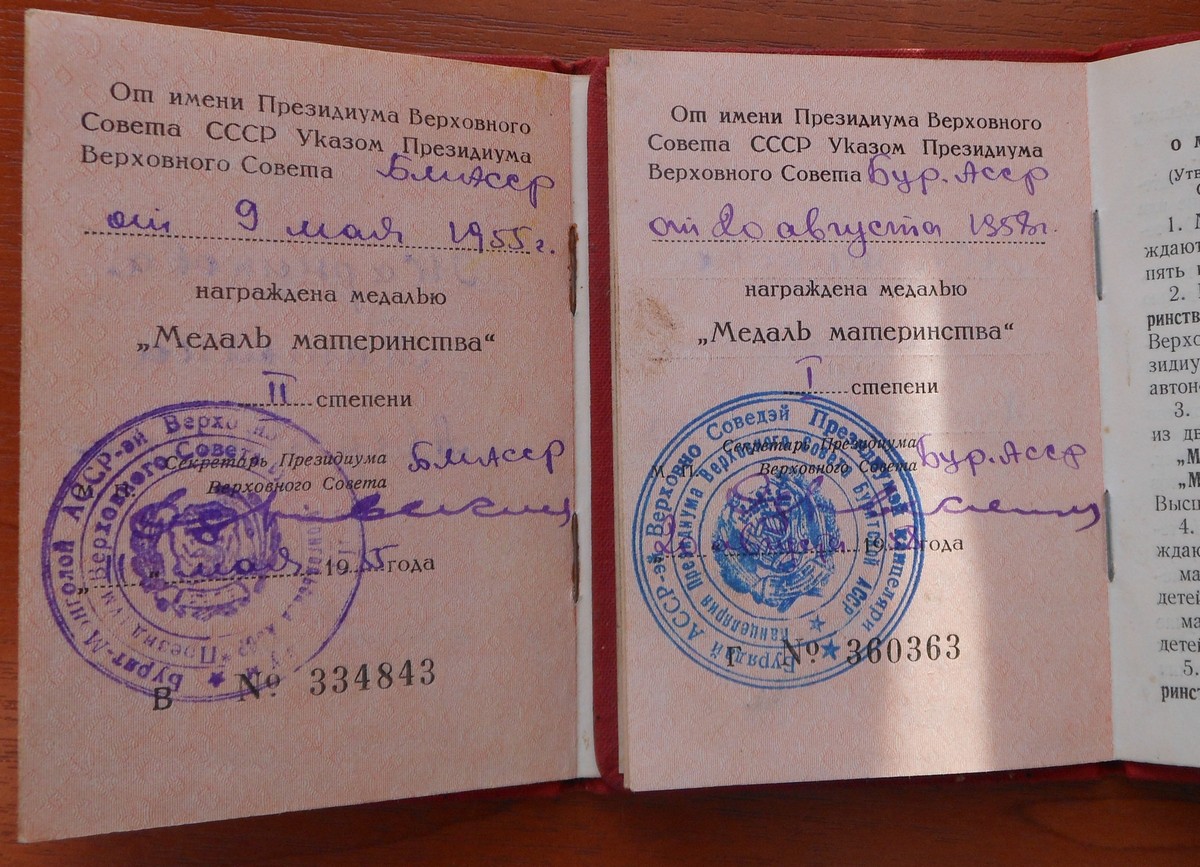 От имени Президиума Верховного
Совета СССР Указом Президиума
Верховного Совета БМАССР
от 9 мая 1955 г.
награждена медалью
„Медаль материнства“
II степени
Секретарь Президиума БМАССР
Верховного Совета
мая 1955 года
Бурят-Монголой АССР-эй Верховно
Верховного Совета
В № 334843
От имени Президиума Верховного
Совета СССР Указом Президиума
Верховного Совета Бур. АССР
от 20 августа 1958 г.
награждена медалью
„Медаль материнства“
I степени
Секретарь Президиума Бур. АССР
М. П. Верховного Совета
1958 года
Буряадай АССР-эй Верховно Соведэй Президиумай Канцеляри
Канцелярия Президиума Верховного Совета Бурятской АССР
Г № 360363
о
(Утв
1.
ждают
пять
2.
ринств
Верхо
зидиу
автоно
3.
из дв
„М
„М
Высш
4.
ждаю
ма
детей
ма
детей
5.
ринст